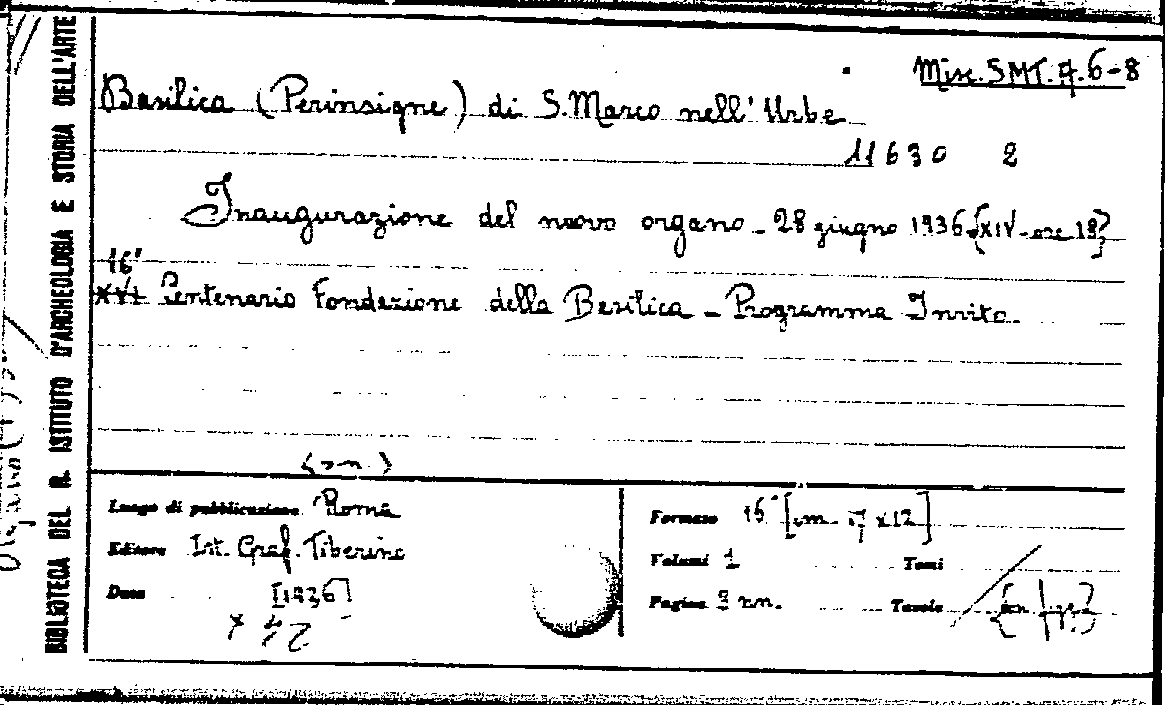 Misc. SMT. A. 6-8
Basilica (Perinsigne) di S. Marco nell'Urbe
11630 2
Inaugurazione del nuovo organo - 28 giugno 1936 [XIV - ore 18]
16°
XVI Centenario Fondazione della Basilica - Programma Invito.
BIBLIOTECA DEL R. ISTITUTO D'ARCHEOLOGIA E STORIA DELL'ARTE
Luogo di pubblicazione Roma
Editore Ist. Graf. Tiberino
Data [1936]
Formato 16° [cm. 17 x 12]
Volumi 1 Tomi
Pagine 3 nn. Tavole